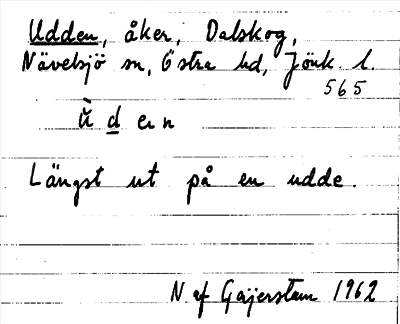 Udden, åker, Dalskog,
Nävelsjö sn, Östra hd, Jönk. l.
565
ù d e n
Längst ut på en udde.
N af Geijerstam 1962